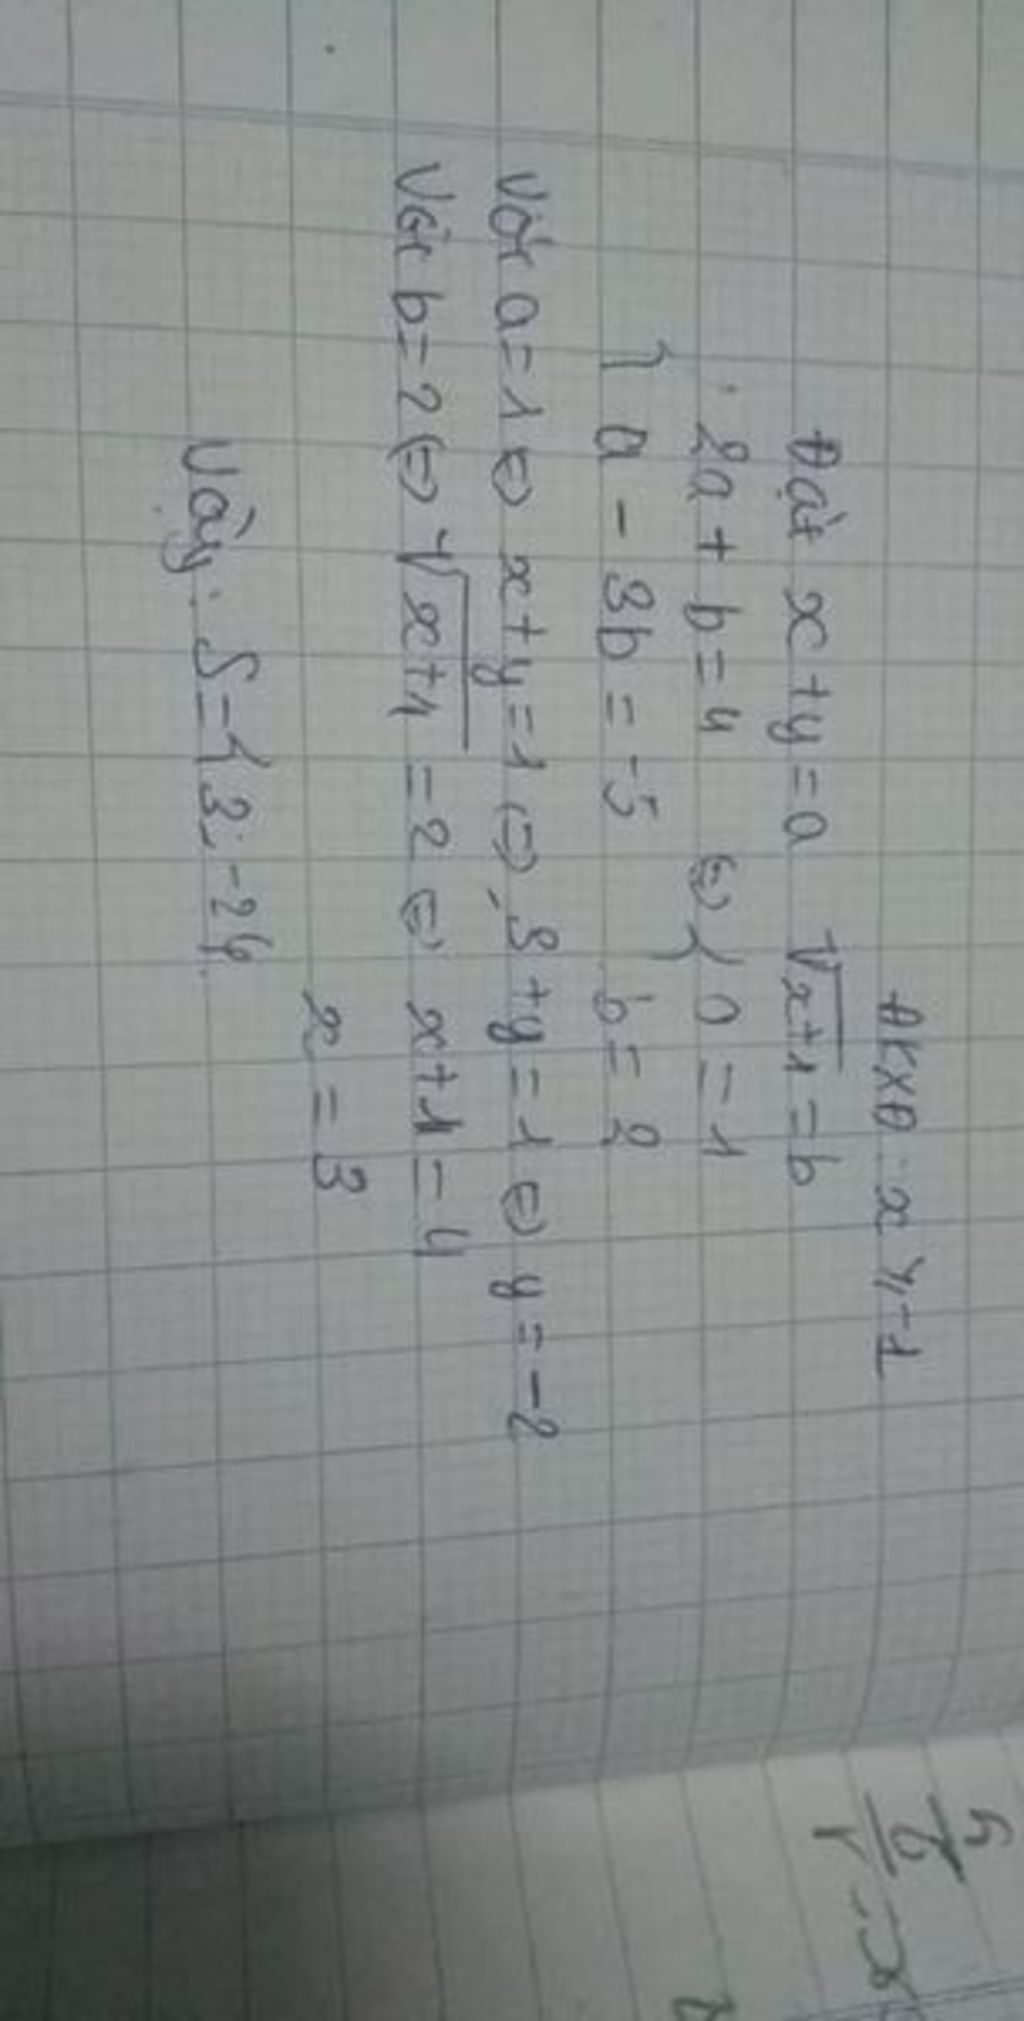 ĐKXĐ: x ≥ -1
Đặt x+y=a √x+1 = b
{ 2a + b = 4 ⇔ { a = 1
a - 3b = -5 b = 2
Với a=1 ⇔ x+y=1 ⇔ 3+y=1 ⇔ y=-2
Với b=2 ⇔ √x+1 = 2 ⇔ x+1=4
x = 3
Vậy: S={3;-2}